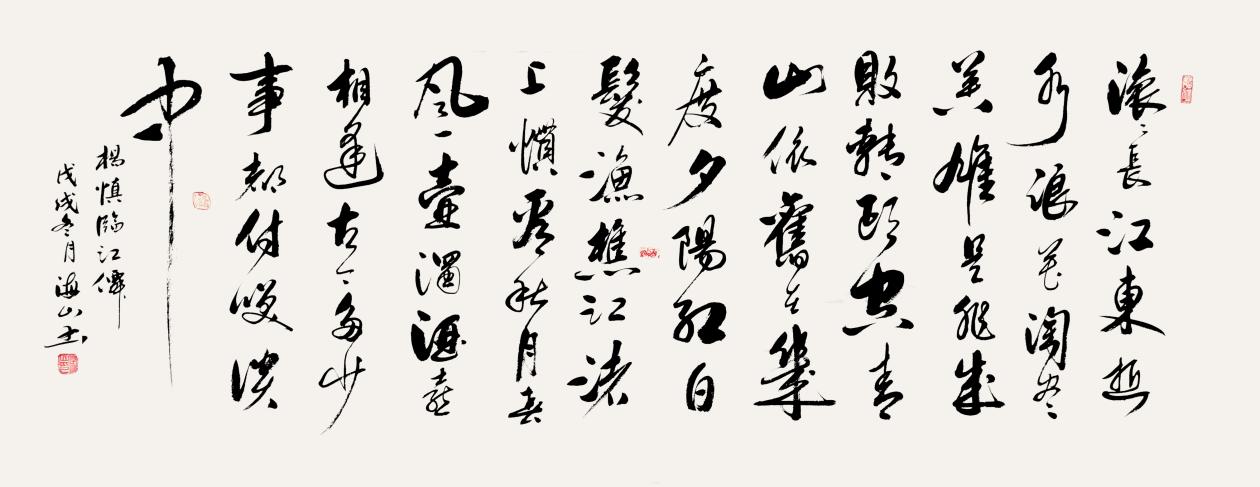 滚滚長江東逝
水浪花淘尽
英雄是非成
敗轉頭空青
山依舊在幾
度夕陽紅白
髮漁樵江渚
上慣看秋月春
風一壺濁酒喜
相逢古今多少
事都付咲談
中
楊慎臨江僊
戊戌冬月海山書